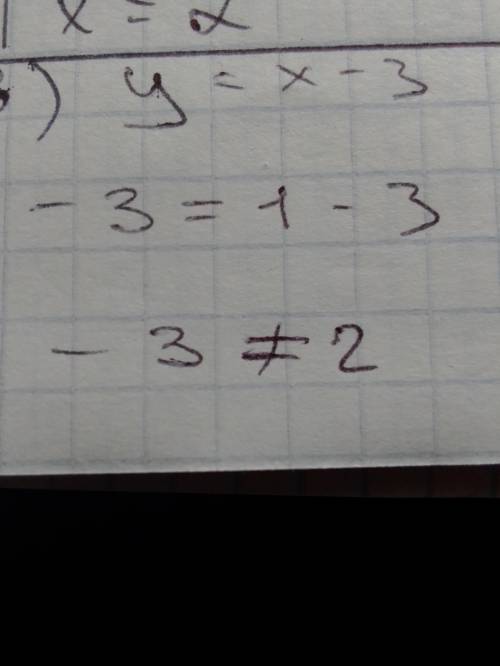 x = 2
) y = x - 3
- 3 = 1 - 3
- 3 ≠ 2